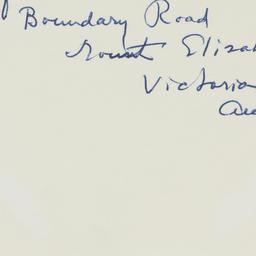 Boundary Road
Mount Eliza
Victoria
Au